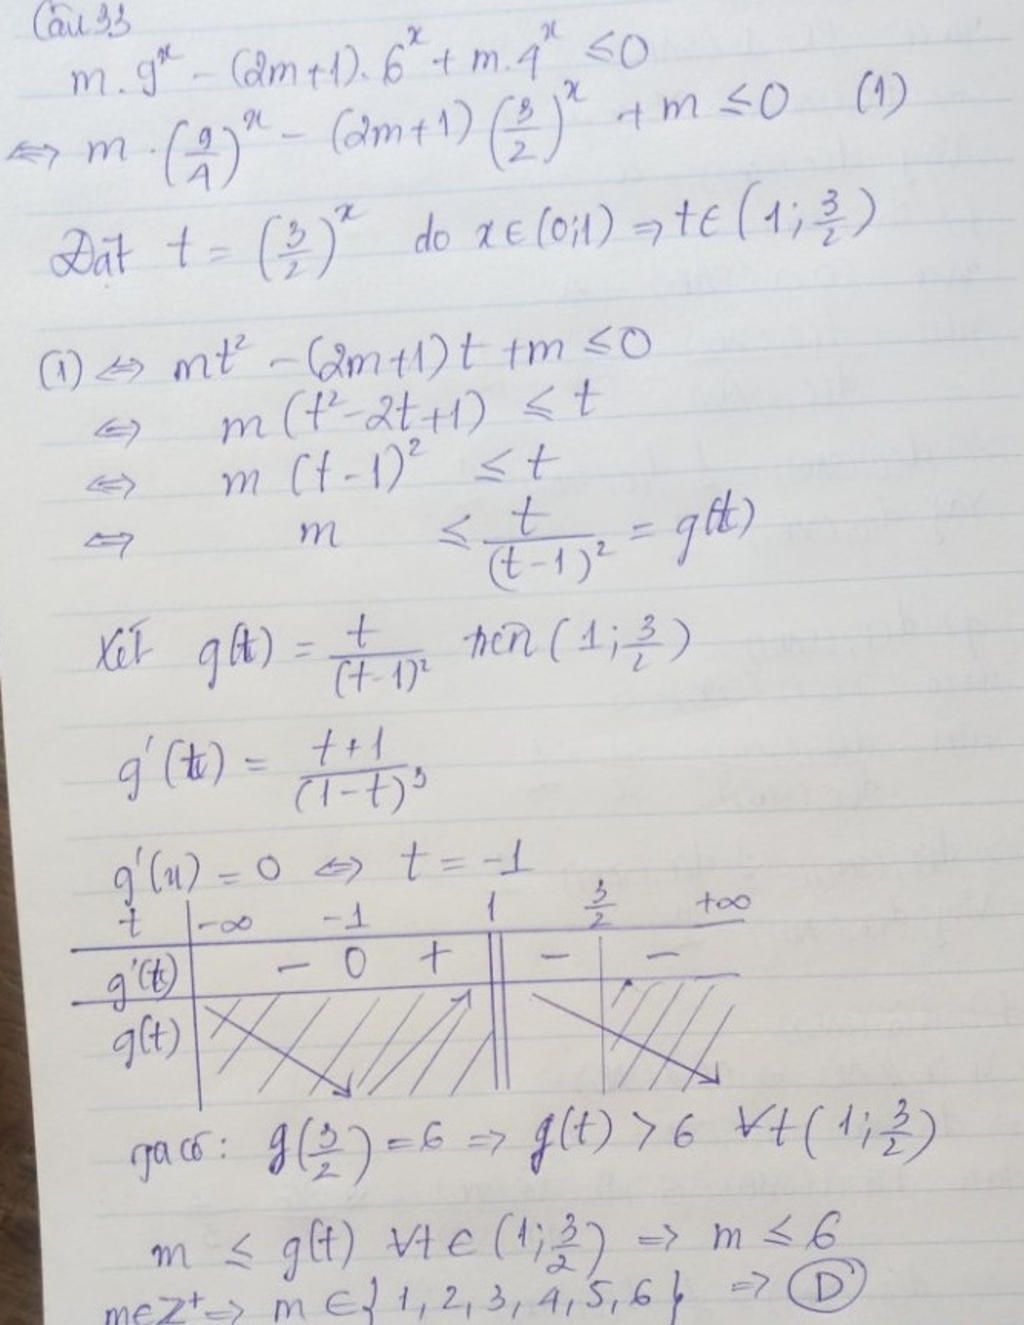 Câu 33
m.9^x - (2m+1).6^x + m.4^x ≤ 0
⇔ m.(9/4)^x - (2m+1)(3/2)^x + m ≤ 0 (1)
Đặt t = (3/2)^x do x ∈ (0;1) ⇒ t ∈ (1; 3/2)
(1) ⇔ mt² - (2m+1)t + m ≤ 0
⇔ m(t² - 2t + 1) ≤ t
⇔ m(t-1)² ≤ t
⇔ m ≤ t/(t-1)² = g(t)
Xét g(t) = t/(t-1)² trên (1; 3/2)
g'(t) = (t+1)/(1-t)³
g'(u) = 0 ⇔ t = -1
t -∞ -1 1 3/2 +∞
g'(t) - 0 + - -
g(t)
Ta có: g(3/2) = 6 ⇒ g(t) > 6 ∀t (1; 3/2)
m ≤ g(t) ∀t ∈ (1; 3/2) ⇒ m ≤ 6
m∈Z⁺ ⇒ m ∈ {1, 2, 3, 4, 5, 6} ⇒ D